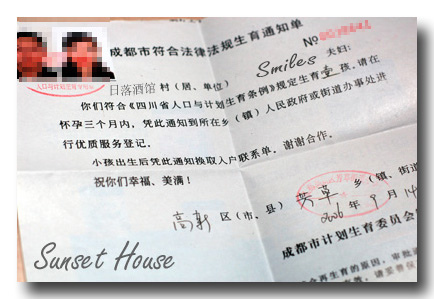 成都市符合法律法规生育通知单
No
日落酒馆 村(居、单位) Smiles 夫妇:
你们符合《四川省人口与计划生育条例》规定生育壹孩,请在
怀孕三个月内,凭此通知到所在乡(镇)人民政府或街道办事处进
行优质服务登记。
小孩出生后凭此通知换取入户联系单,谢谢合作。
祝你们幸福、美满!
高新 区(市、县) 芳草 乡(镇、街道
2006年9月14
成都市计划生育委员会
合再生育的原因、审批
Sunset House